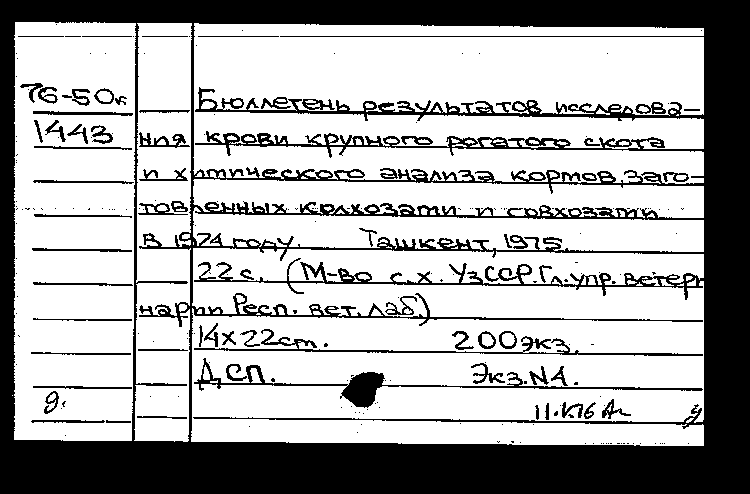 76-50к Бюллетень результатов исследова-
1443 ния крови крупного рогатого скота
и химического анализа кормов, заго-
товленных колхозами и совхозами
в 1974 году. Ташкент, 1975.
22 с. (М-во с.х. УзССР. Гл. упр. ветери
нарии Респ. вет. лаб.)
14х22см. 200экз.
ДСП. Экз. N4.